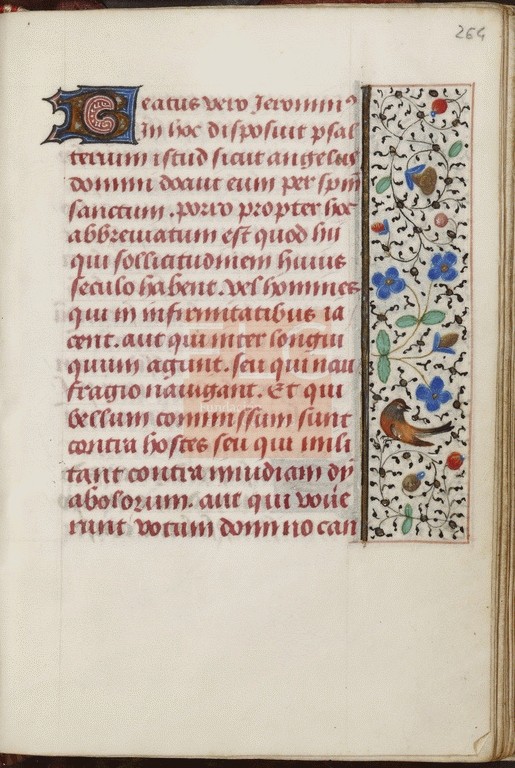 264
Beatus vero Jeronim⁹
In hoc disposuit psal
terium istud sicut angelus
domini docuit eum per spm
sanctum. porro propter hoc
abbreviatum est quod hii
qui sollicitudinem huius
seculo habent. vel homines
qui in infirmitatibus ia
cent. aut qui iter longui
quium agunt. seu qui nau
fragio navigant. Et qui
bellum commissum sunt
contra hostes seu qui mili
tant contra invidiam dy
abolorum. aut qui vove
runt votum domino can